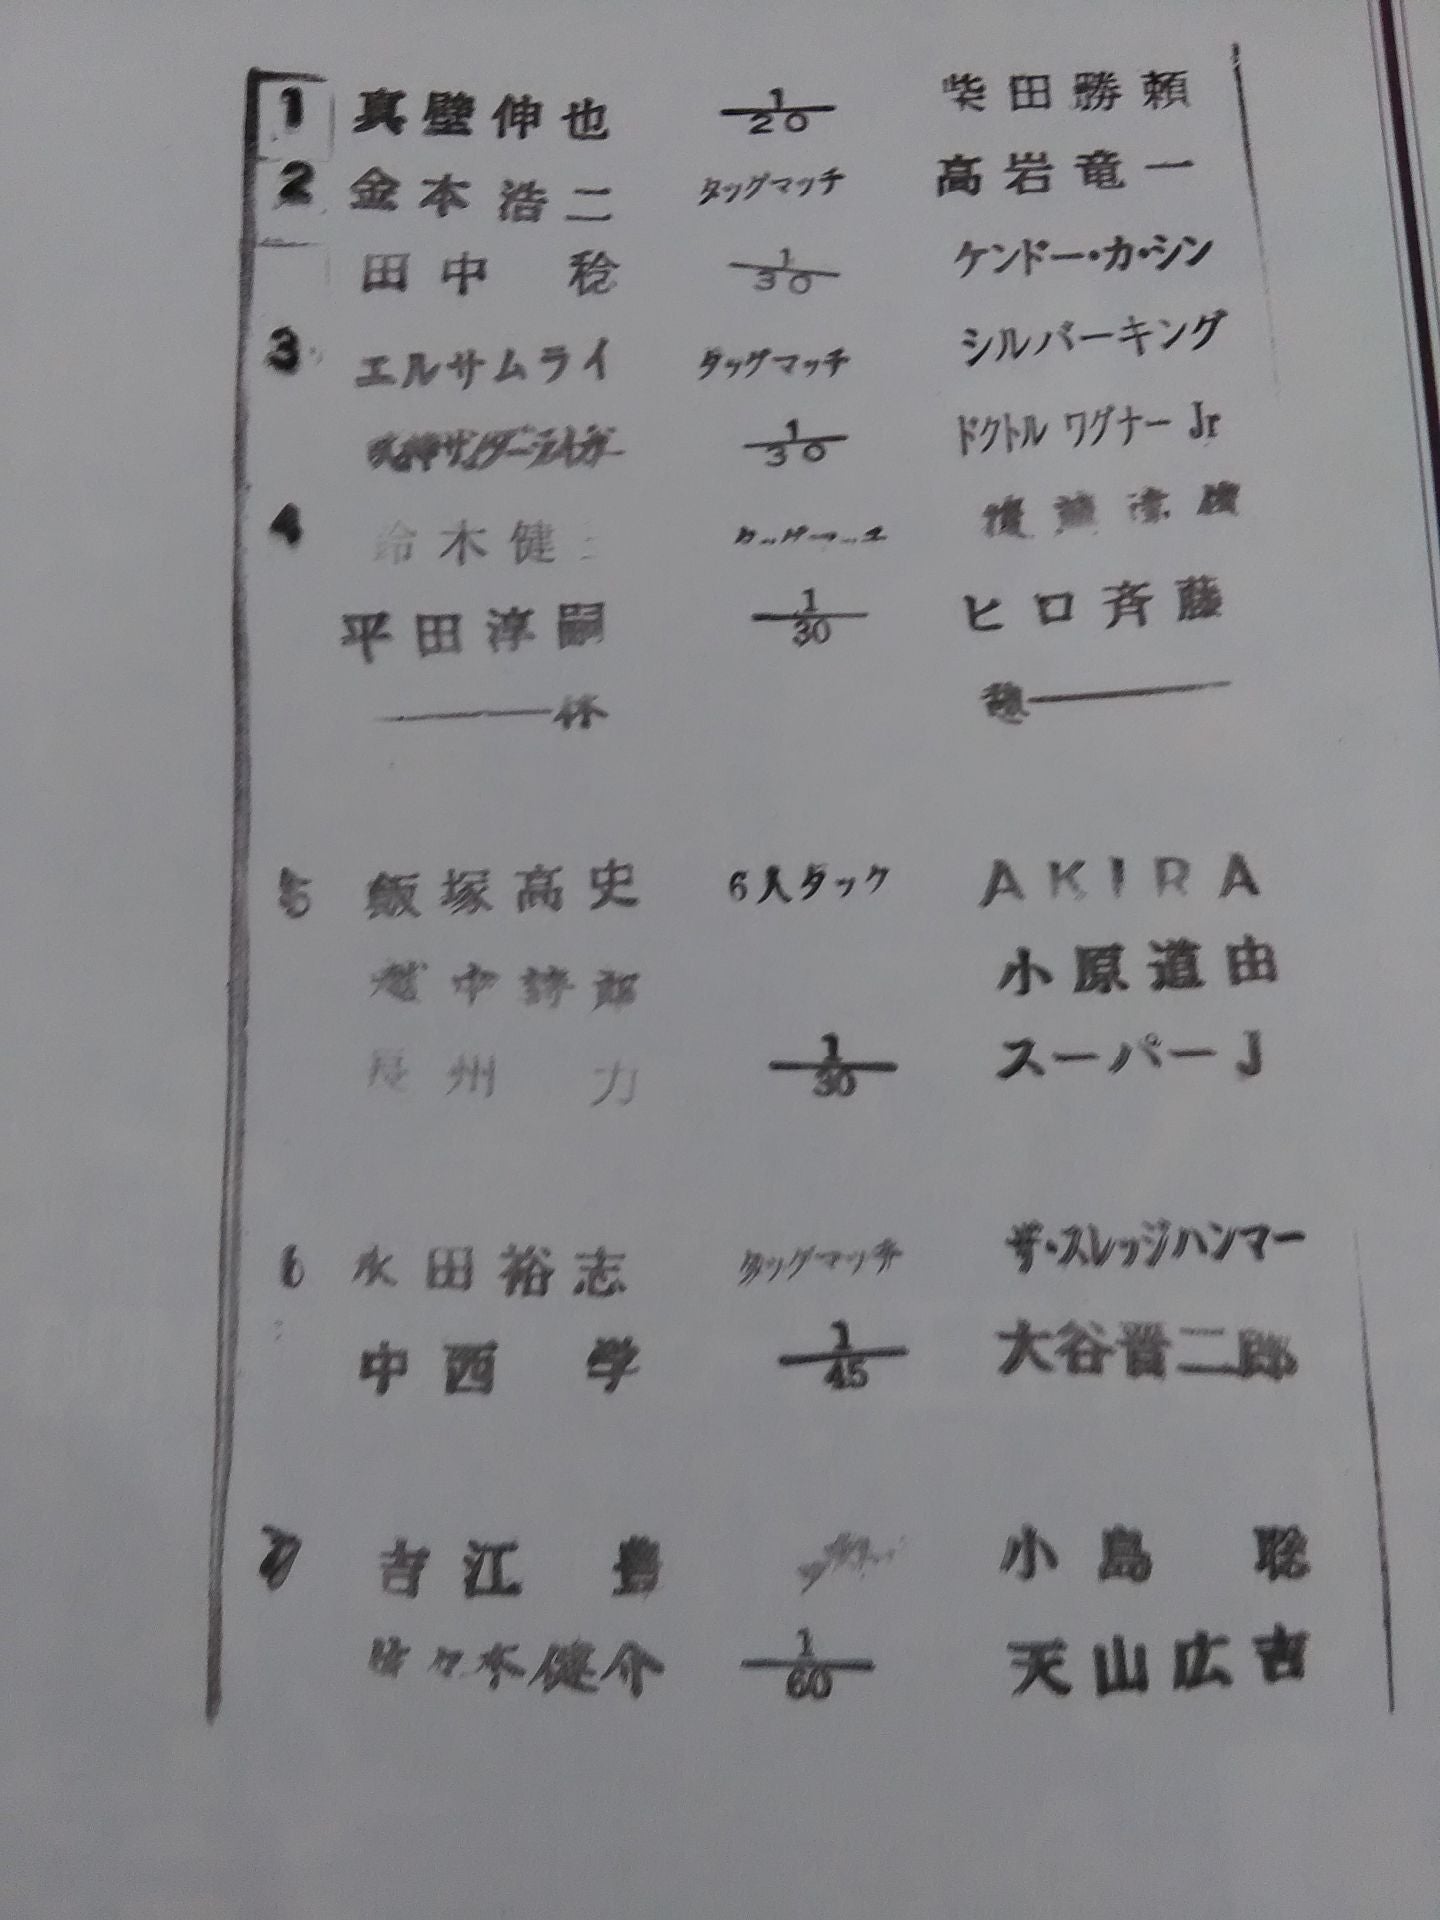 1 真壁伸也 1/20 柴田勝頼
2 金本浩二 タッグマッチ 高岩竜一
田中 稔 1/30 ケンドー・カ・シン
3 エルサムライ タッグマッチ シルバーキング
獣神サンダー・ライガー 1/30 ドクトル ワグナー Jr
4 鈴木健三 タッグマッチ
平田淳嗣 1/30 ヒロ斉藤
休 憩
5 飯塚高史 6人タッグ AKIRA
越中詩郎 小原道由
長州 力 1/30 スーパーJ
6 永田裕志 タッグマッチ ザ・スレッジハンマー
中西 学 1/45 大谷晋二郎
7 吉江 豊 小島 聡
佐々木健介 1/60 天山広吉